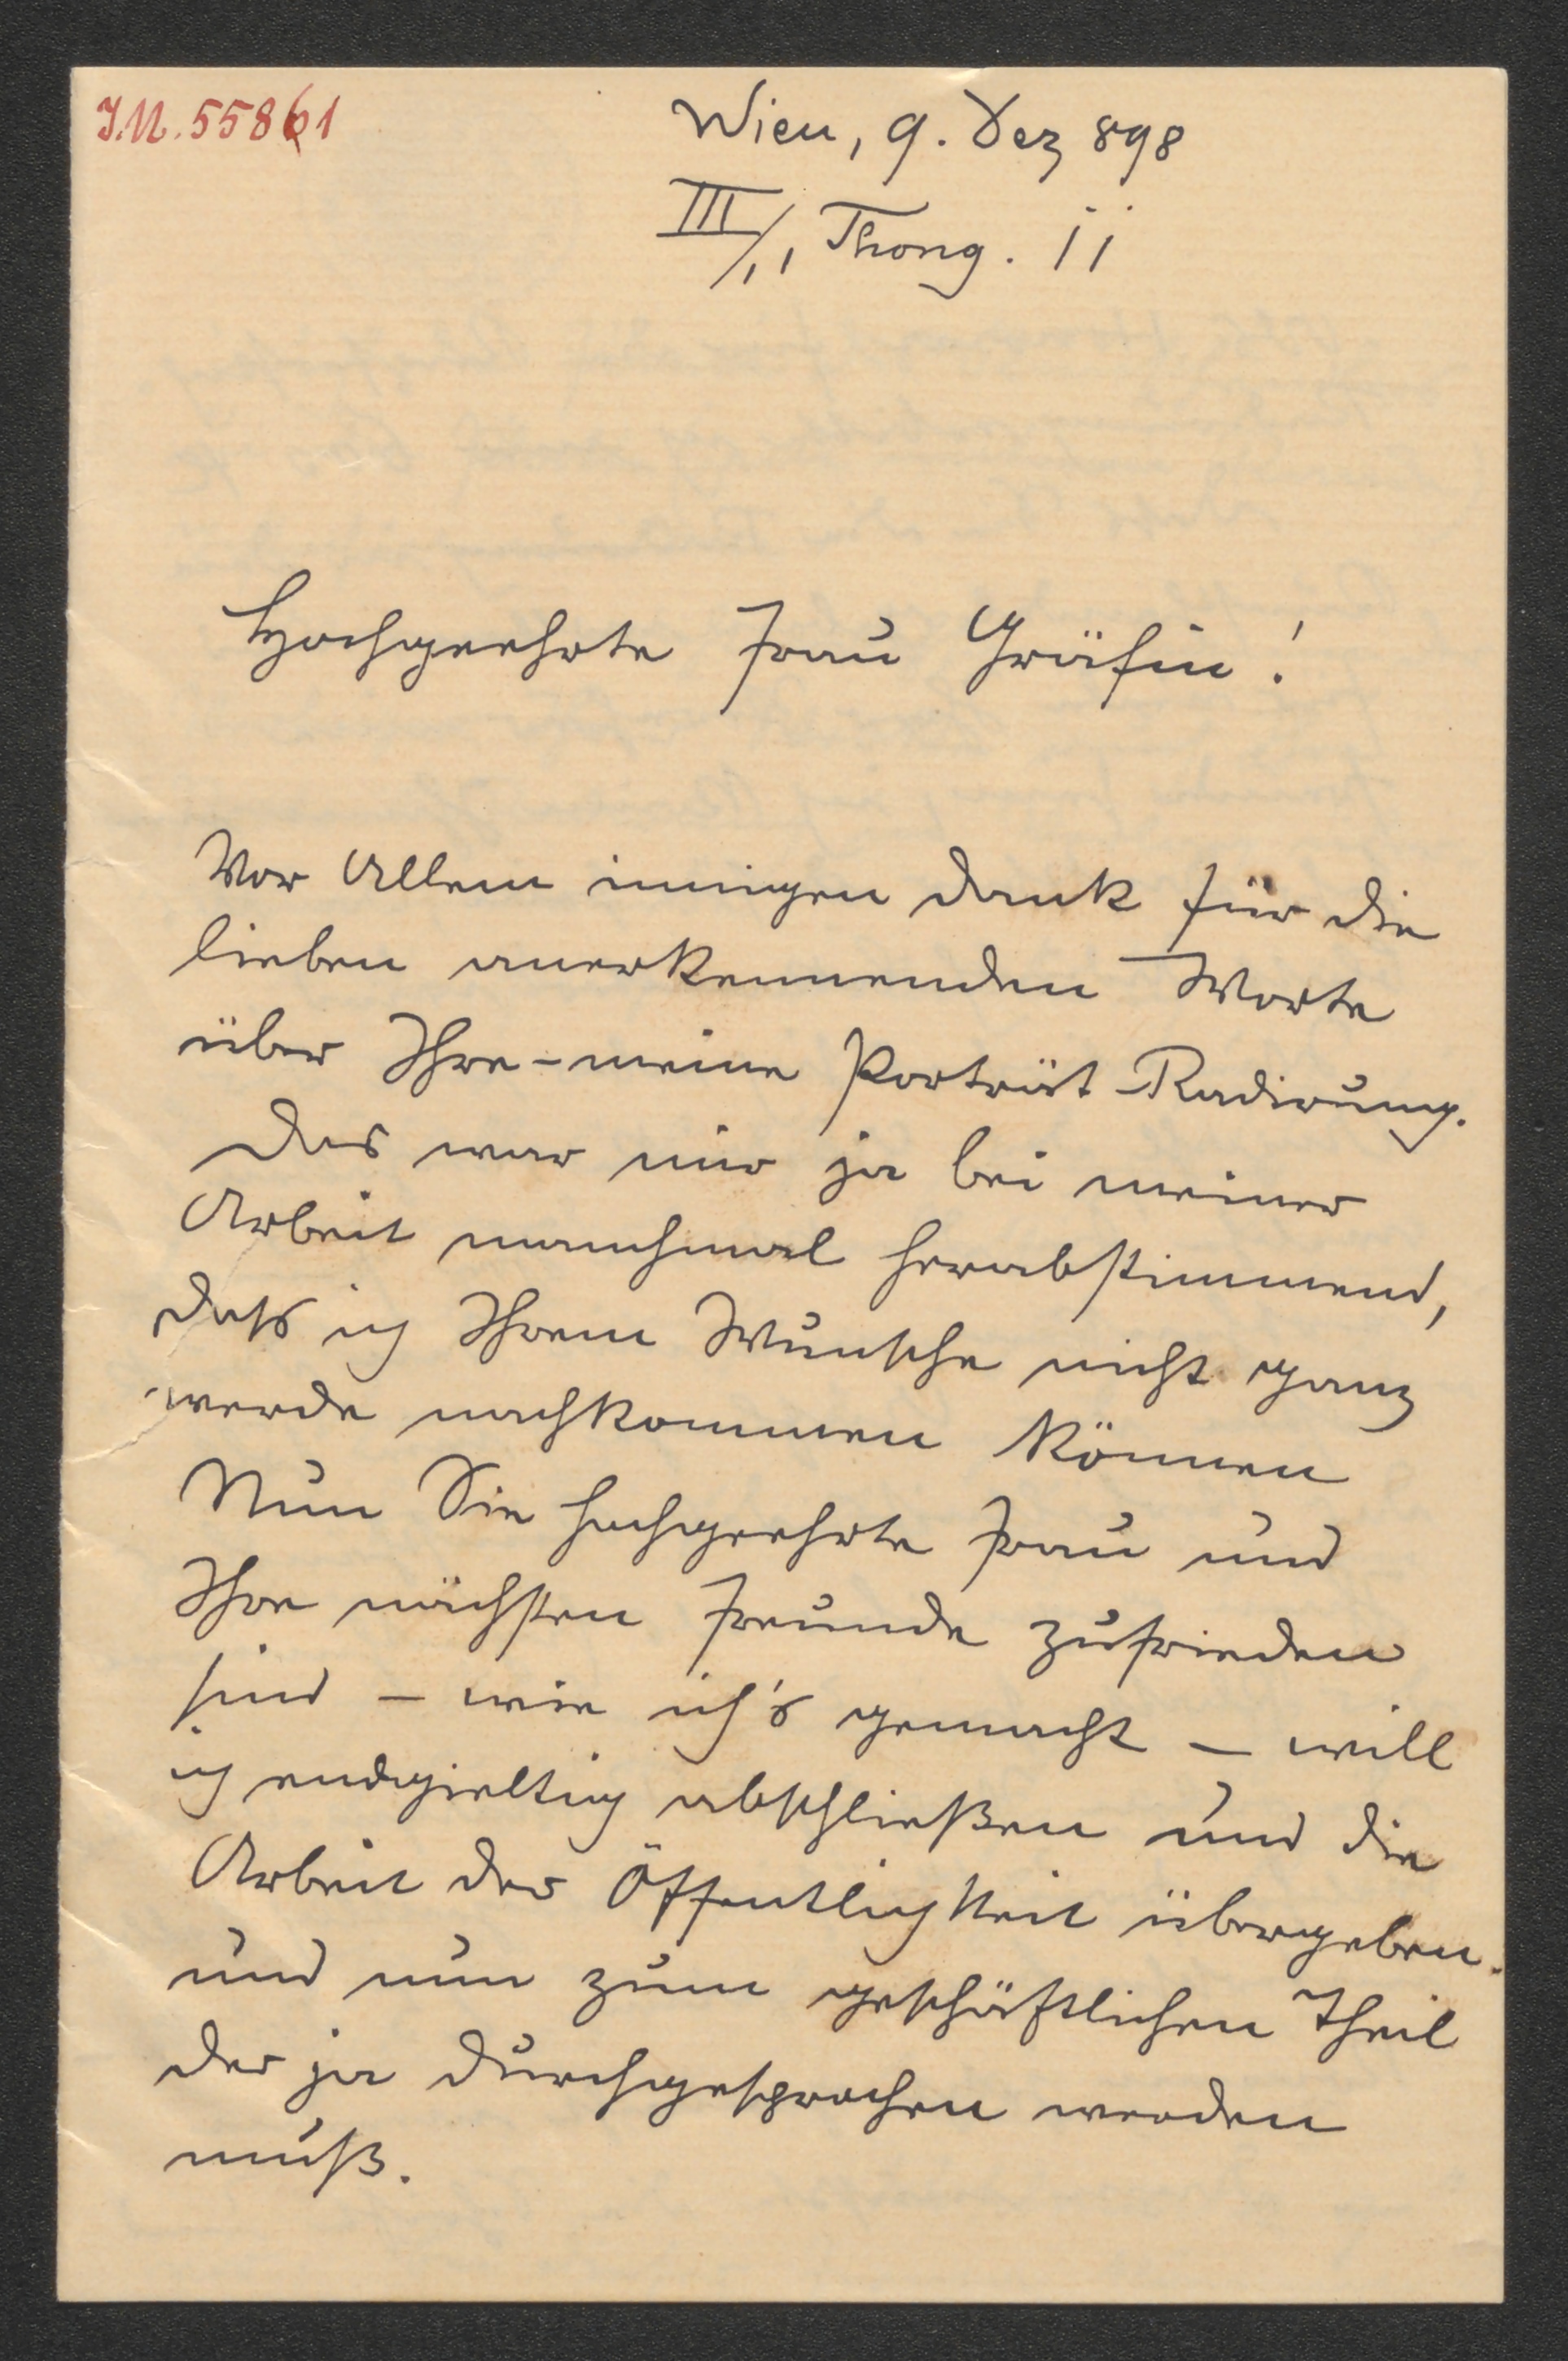 J.N. 55861
Wien, 9. Dez 898
III/1, Thong. 11
Hochgeehrte Frau Gräfin!
Vor Allem innigen Dank für die
lieben anerkennenden Worte
über Ihre-meine Porträt-Radirung.
Das war mir ja bei meiner
Arbeit manchmal herabstimmend,
daß ich Ihrem Wunsche nicht ganz
werde nachkommen können
Nun Sie hochgeehrte Frau und
Ihre nächsten Freunde zufrieden
sind – wie ich's gemacht – will
ich endgieltig abschließen und die
Arbeit der Öffentlichkeit übergeben.
und nun zum geschäftlichen Theil
der ja durchgesprochen werden
muß.